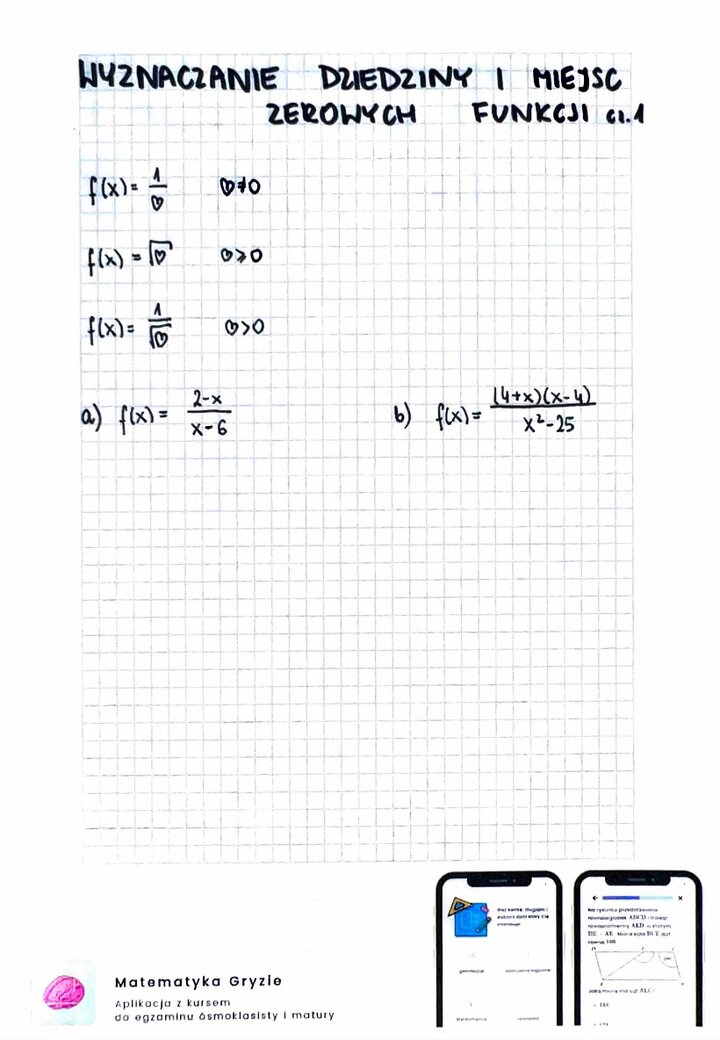 WYZNACZANIE DZIEDZINY I MIEJSC
ZEROWYCH FUNKCJI cz.1
f(x)= 1/♡ ♡≠0
f(x) = √♡ ♡⩾0
f(x)= 1/√♡ ♡>0
a) f(x)= (2-x)/(x-6) b) f(x)= ((4+x)(x-4))/(x²-25)
Matematyka Gryzie
Aplikacja z kursem
do egzaminu ósmoklasisty i matury